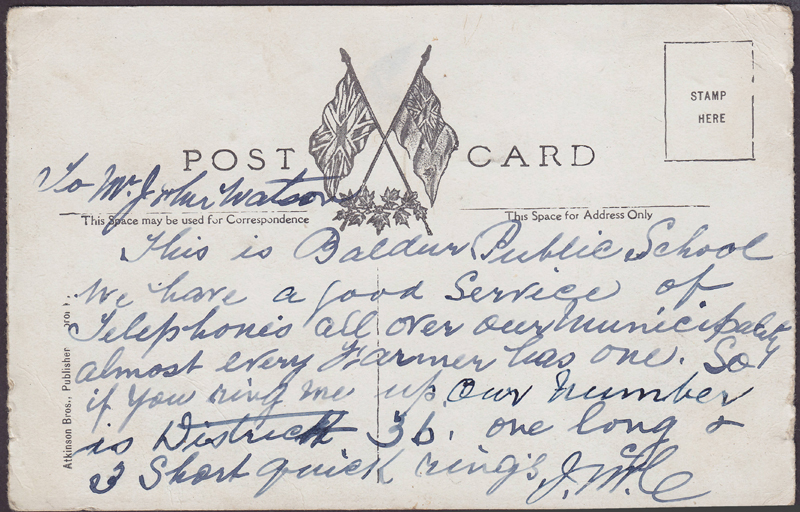 STAMP
HERE
POST CARD
To Mr. John Watson
This Space may be used for Correspondence
This Space for Address Only
This is Baldur Public School
We have a good Service of
Telephones all over our municipality
almost every Farmer has one. So
if you ring me up. Our number
is District 36. one long &
3 Short quick rings
Atkinson Bros., Publisher